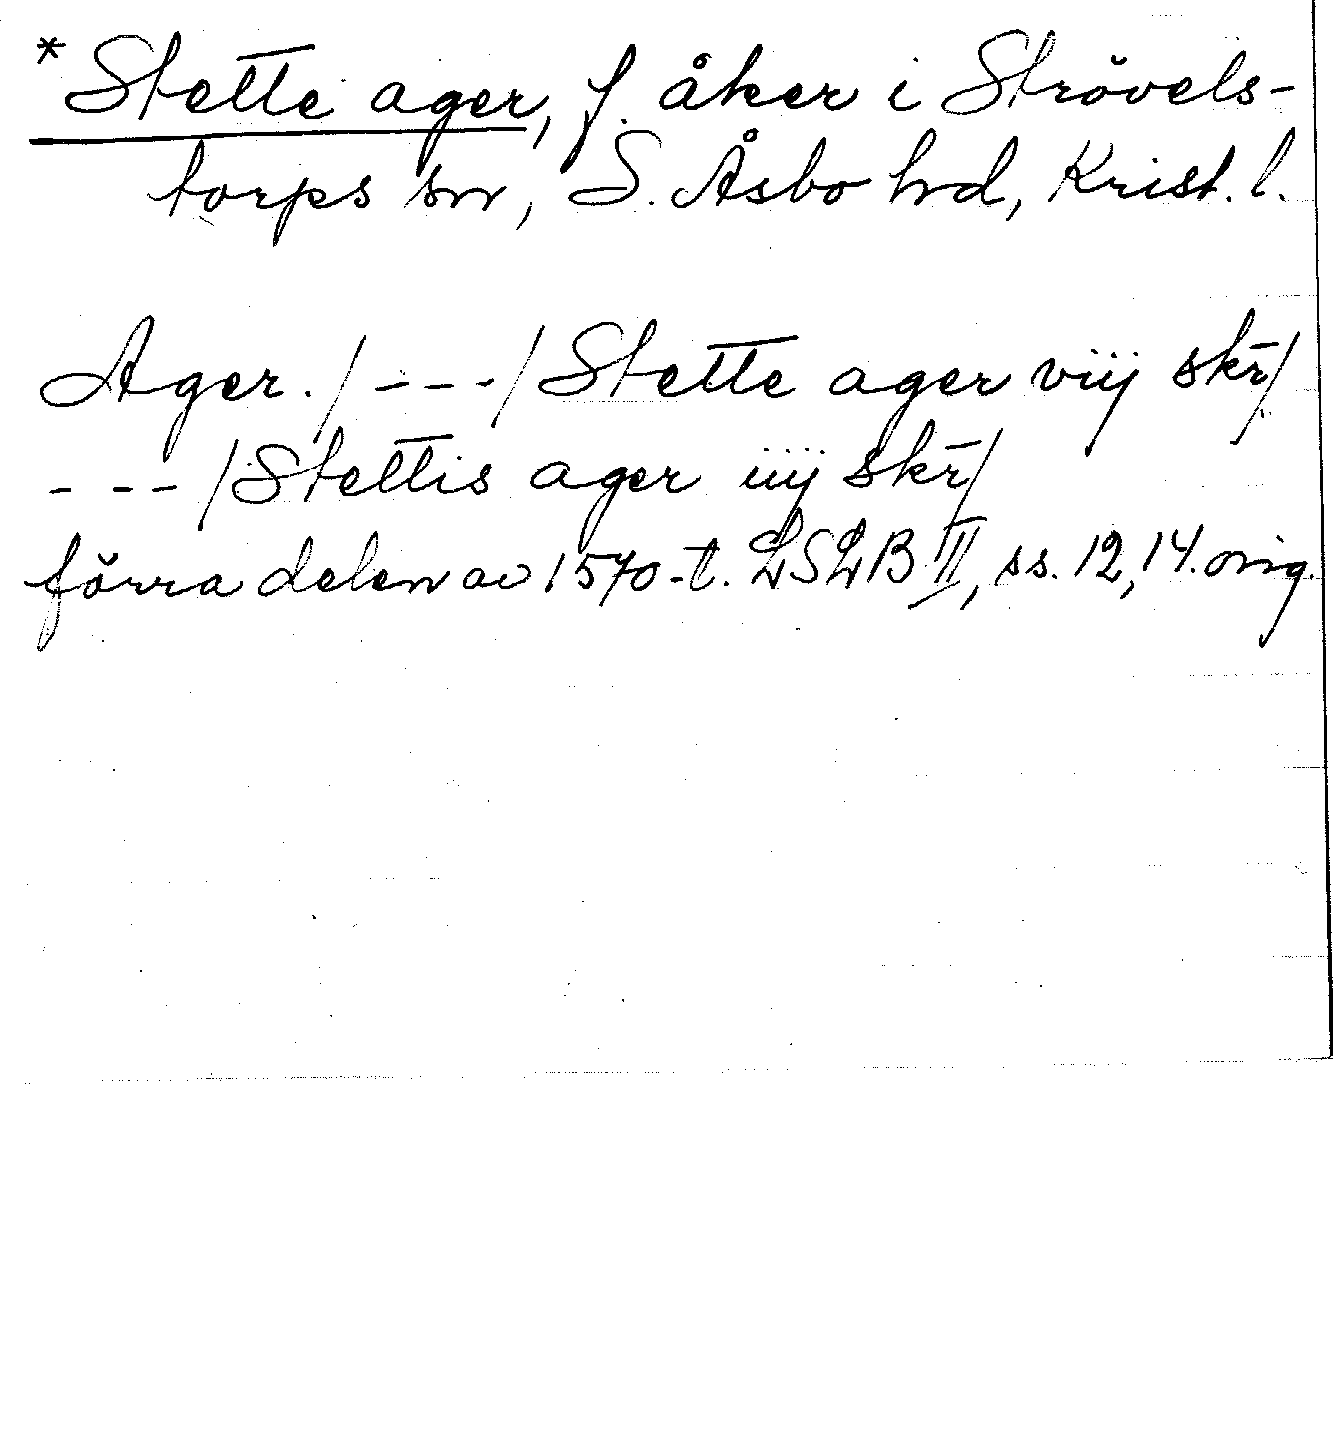 *Stette ager, f. åker i Strövels-
torps sn, S. Åsbo hd, Krist. l.
Ager. / --- / Stette ager viij skr̄ /
--- / Stettis ager iiij skr̄ /
förra delen av 1570-t. LSLB II, ss. 12, 14. orig.